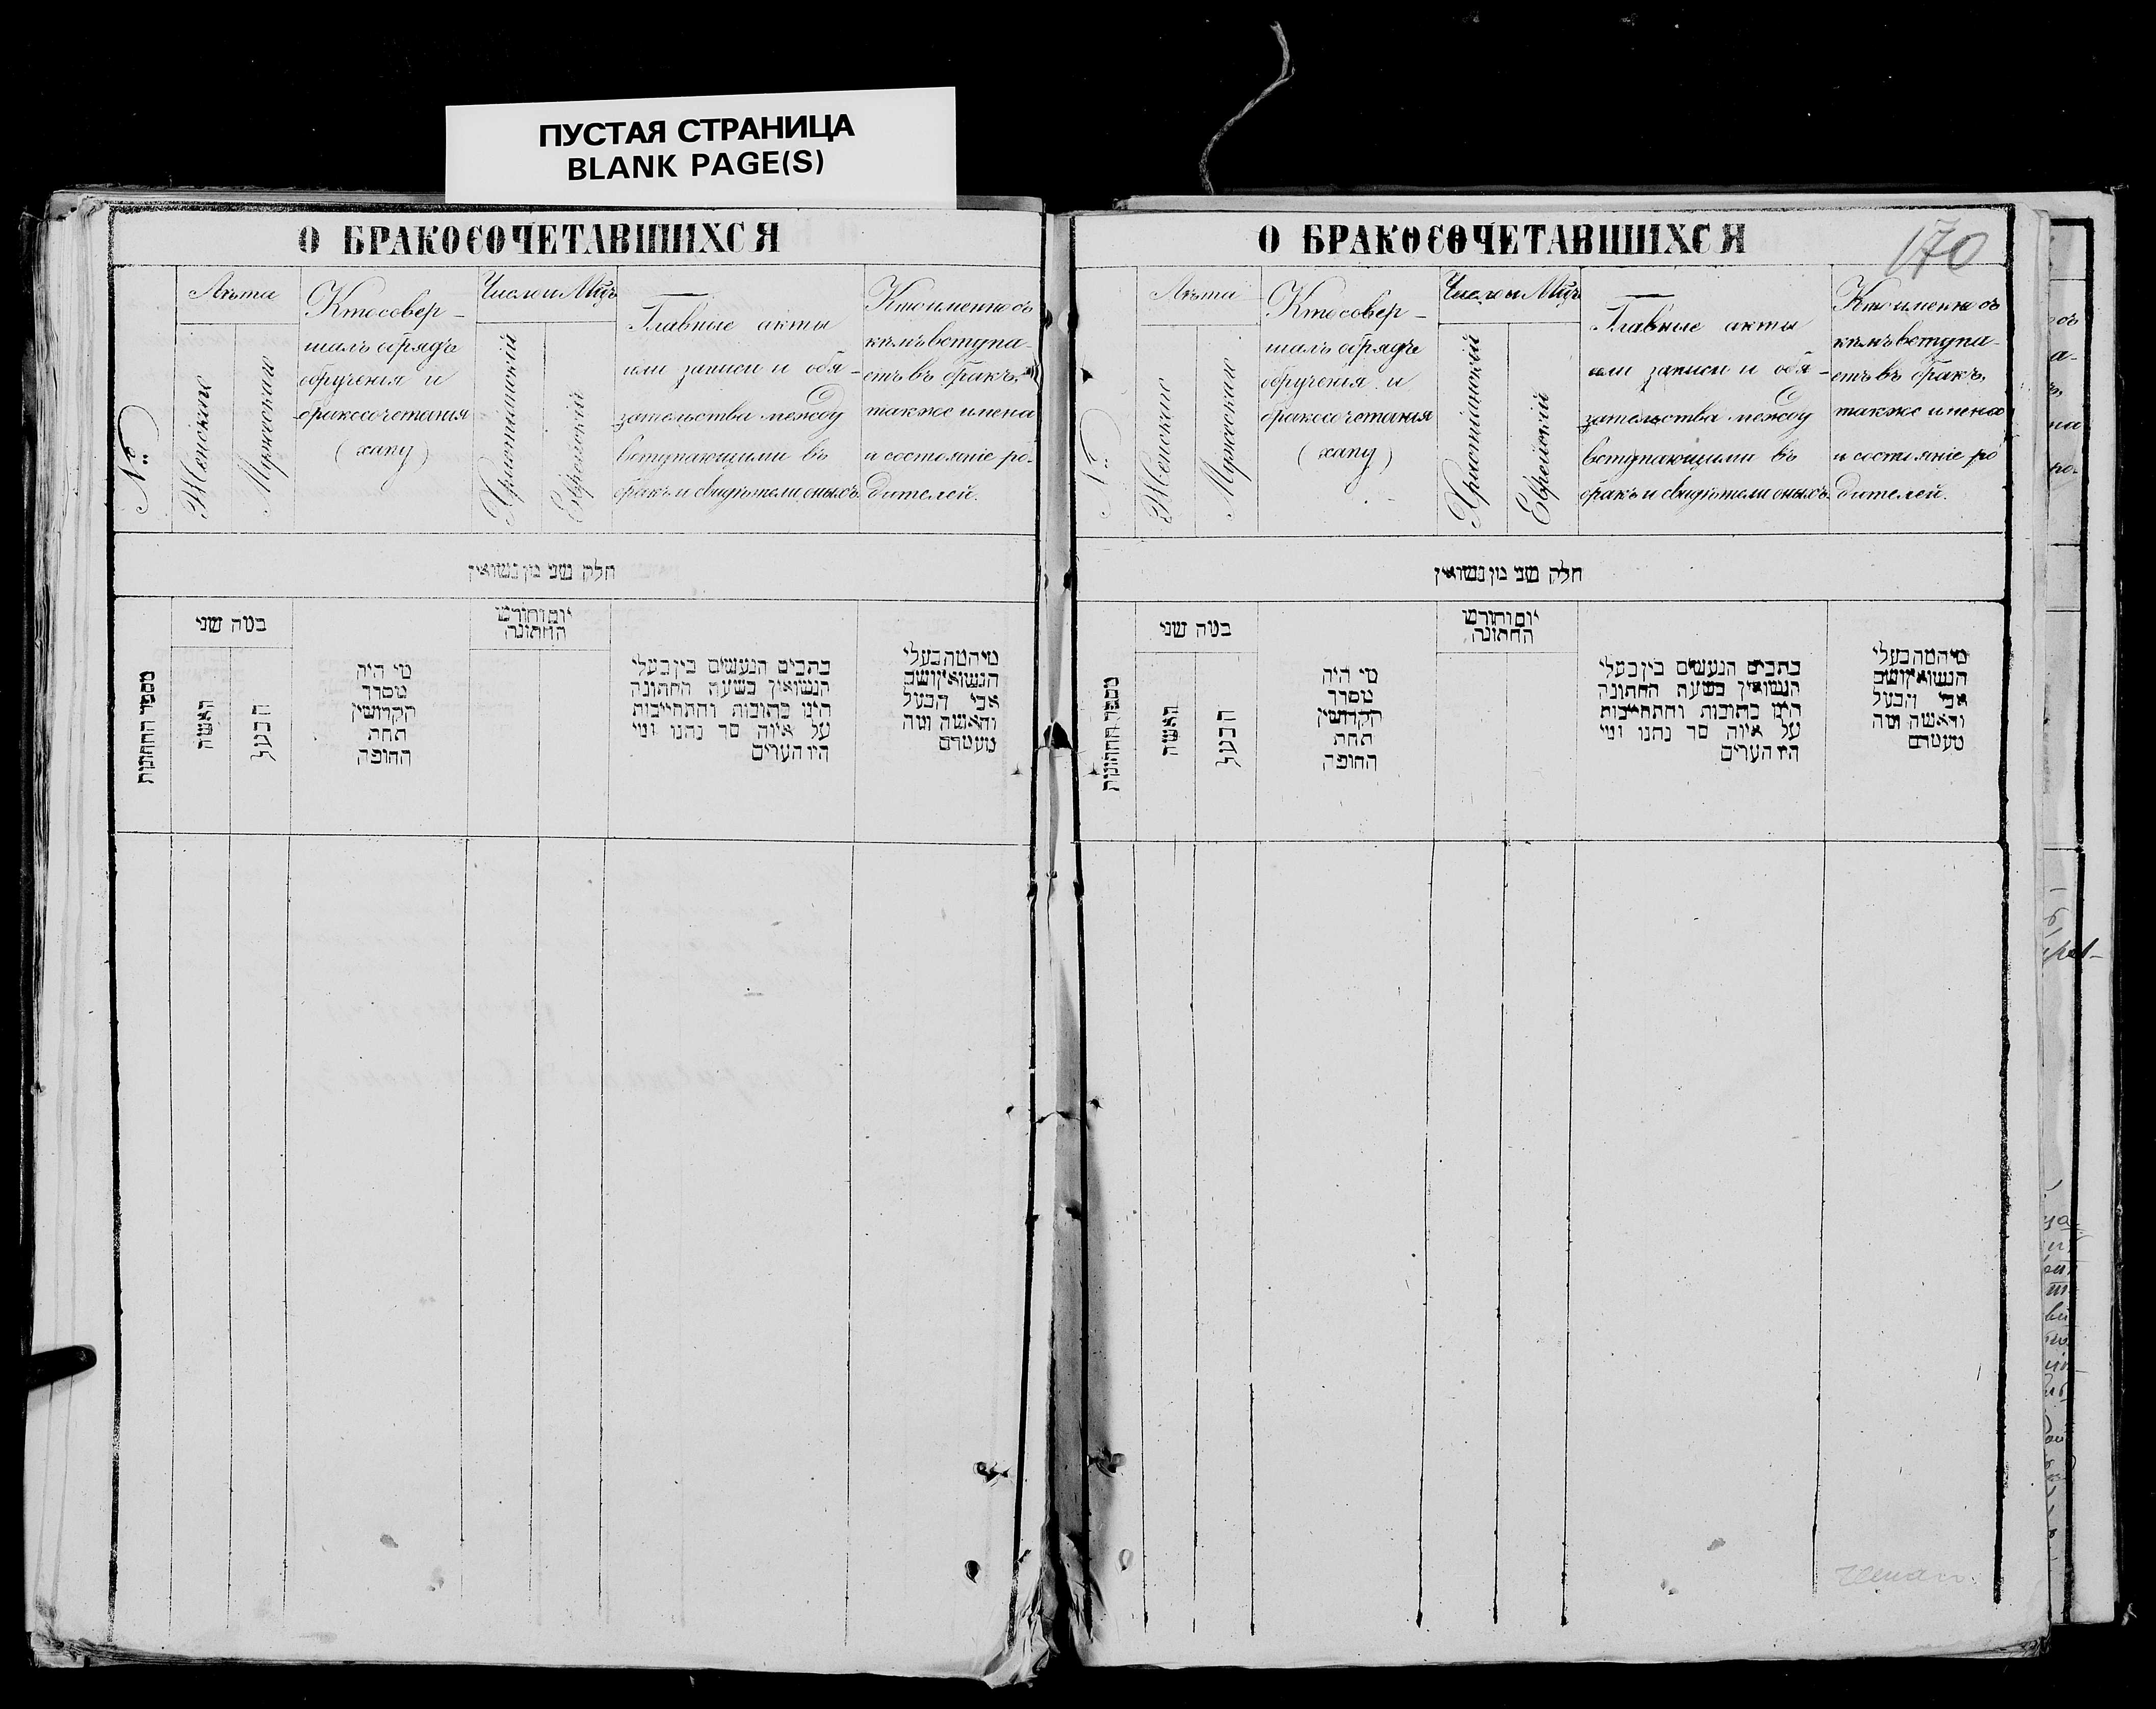 ПУСТАЯ СТРАНИЦА
BLANK PAGE(S)
О БРАКОСОЧЕТАВШИХСЯ
№
Лѣта
Женскаго
Мужескаго
Кто совер-
шалъ обрядъ
обрученія и
бракосочетанія
(хапу)
Число и Мѣц
Христіанскій
Еврейскій
Главные акты
или записи и обя-
зательства между
вступающими въ
бракъ и свидѣтели оныхъ
Кто именно съ
кѣмъ вступа-
етъ въ бракъ,
также имена
и состояніе ро-
дителей.
חלק שני מן נשואין
מספר החתונות
במה שני
האשה
הבעל
מי היה
מסדר
הקדושין
תחת
החופה
יום וחודש
החתונה
כתבים הנעשים בין בעלי
הנשואין בשעת החתונה
היינו כתובות והתחייבות
על איזה סך נתנו ומי
היו העדים
מי המה בעלי
הנשואין ושם
אבי הבעל
והאשה ומה
מעמדם
О БРАКОСОЧЕТАВШИХСЯ
170
№
Лѣта
Женскаго
Мужескаго
Кто совер-
шалъ обрядъ
обрученія и
бракосочетанія
(хапу)
Число и Мѣц
Христіанскій
Еврейскій
Главные акты
или записи и обя-
зательства между
вступающими въ
бракъ и свидѣтели оныхъ
Кто именно съ
кѣмъ вступа-
етъ въ бракъ,
также имена
и состояніе ро
дителей.
חלק שני מן נשואין
מספר החתונות
במה שני
האשה
הבעל
מי היה
מסדר
הקדושין
תחת
החופה
יום וחודש
החתונה
כתבים הנעשים בין בעלי
הנשואין בשעת החתונה
היינו כתובות והתחייבות
על איזה סך נתנו ומי
היו העדים
מי המה בעלי
הנשואין ושם
אבי הבעל
והאשה ומה
מעמדם